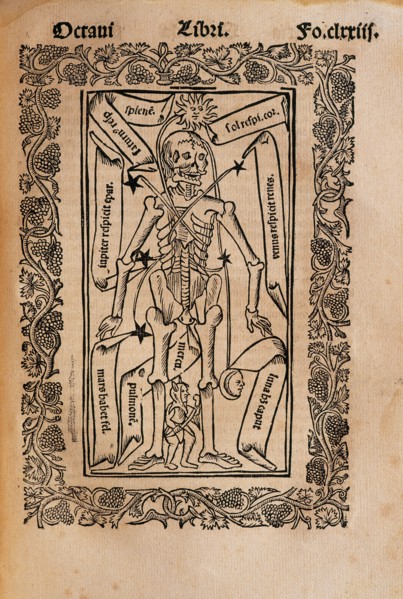 Octaui Libri. Fo.clxxiii.
spienē.
saturn' resp.
sol respi. coz.
iupiter respicit epar.
venus respicit renes.
mars habet fel.
pulmonē.
mercu.
luna hʒ caput